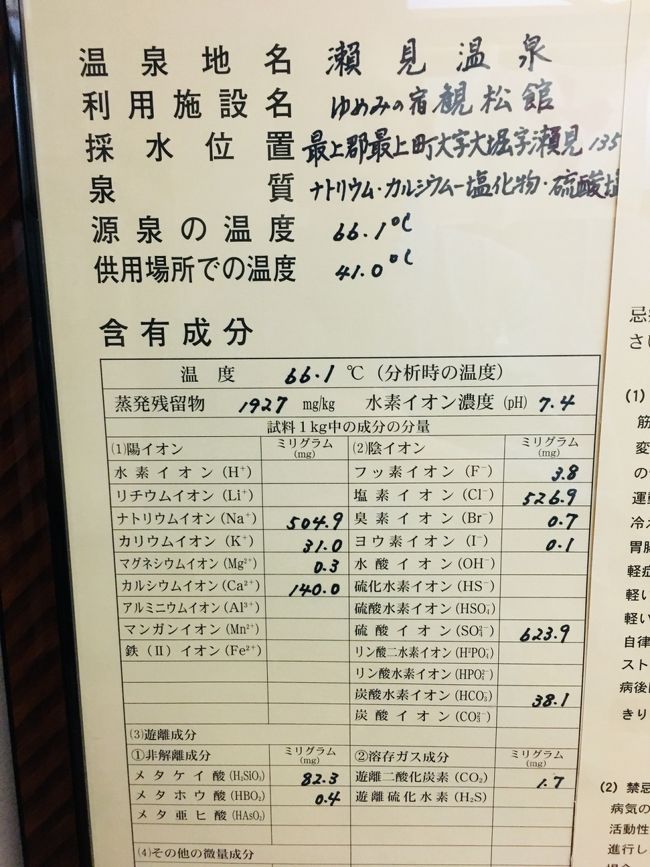 温泉地名 瀬見温泉
利用施設名 ゆめみの宿 観松館
採水位置 最上郡最上町大字大堀字瀬見135
泉質 ナトリウム・カルシウムー塩化物・硫酸塩
源泉の温度 66.1℃
供用場所での温度 41.0℃
含有成分
温度 66.1 ℃(分析時の温度)
蒸発残留物 1927 mg/kg 水素イオン濃度(pH) 7.4
試料1kg中の成分の分量
(1)陽イオン ミリグラム(mg) (2)陰イオン ミリグラム(mg)
水素イオン(H⁺) フッ素イオン(F⁻) 3.8
リチウムイオン(Li⁺) 塩素イオン(Cl⁻) 526.9
ナトリウムイオン(Na⁺) 504.9 臭素イオン(Br⁻) 0.7
カリウムイオン(K⁺) 31.0 ヨウ素イオン(I⁻) 0.1
マグネシウムイオン(Mg²⁺) 0.3 水酸イオン(OH⁻)
カルシウムイオン(Ca²⁺) 140.0 硫化水素イオン(HS⁻)
アルミニウムイオン(Al³⁺) 硫酸水素イオン(HSO₄⁻)
マンガンイオン(Mn²⁺) 硫酸イオン(SO₄²⁻) 623.9
鉄(II)イオン(Fe²⁺) リン酸二水素イオン(H²PO₄⁻)
リン酸水素イオン(HPO₄²⁻)
炭酸水素イオン(HCO₃⁻) 38.1
炭酸イオン(CO₃²⁻)
(3)遊離成分
①非解離成分 ミリグラム(mg) ②溶存ガス成分 ミリグラム(mg)
メタケイ酸(H₂SiO₃) 82.3 遊離二酸化炭素(CO₂) 1.7
メタホウ酸(HBO₂) 0.4 遊離硫化水素(H₂S)
メタ亜ヒ酸(HAsO₂)
(4)その他の微量成分
さい
(1)
筋
変
の
運動
冷え
胃腸
軽症
軽い
軽い
自律
スト
病後
きり
(2) 禁忌
病気の
活動性
進行し